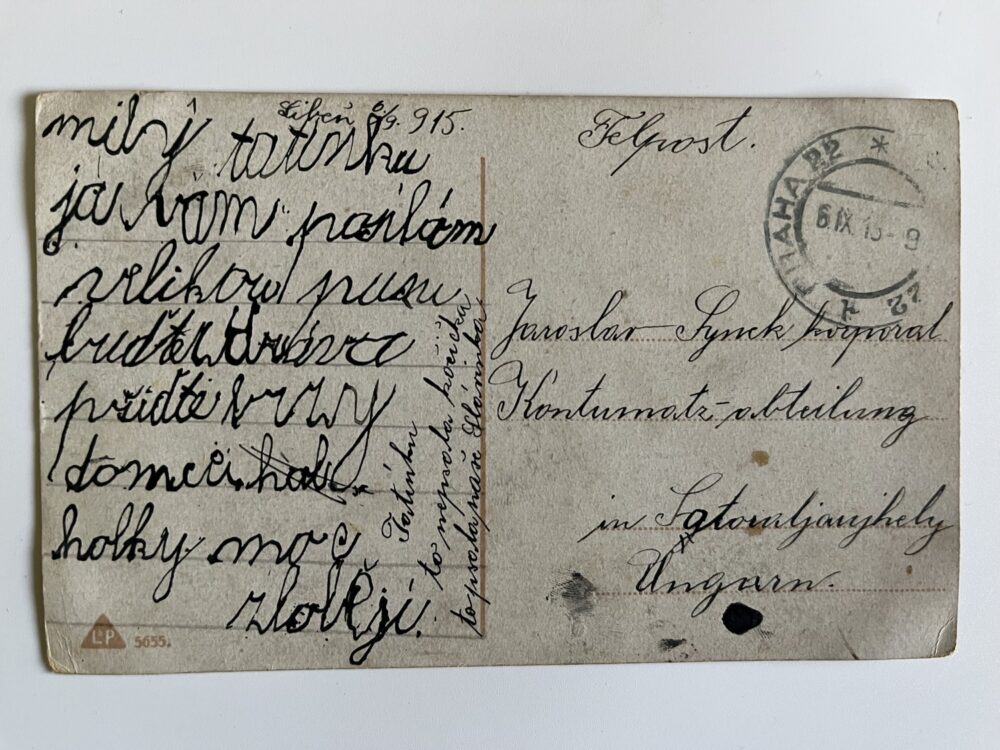 Libeň 6/9. 915.
milý tatínku
já vám posílám
velikou pusu
buďte zdráva
přiďte brzy
domů
holky moc
zlobějí.
Tatínku
to nepsala kočička
to psala naše Slávinka
Felpost.
PRAHA 22
6.IX.15-9
Jaroslav Synek korporal
Kontumatz-abteilung
in Satoraljaujhely
Ungarn.
L·P 5655.